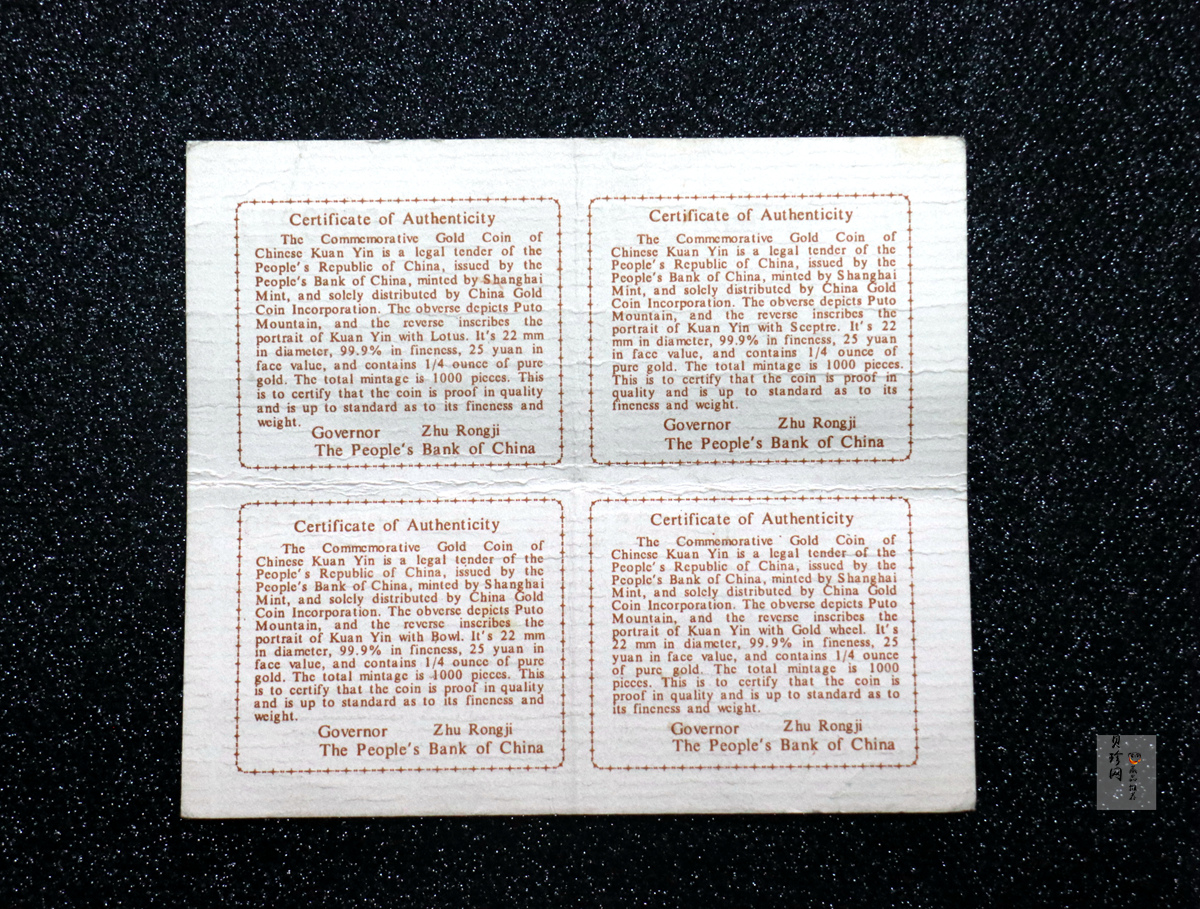 Certificate of Authenticity
The Commemorative Gold Coin of
Chinese Kuan Yin is a legal tender of the
People's Republic of China, issued by the
People's Bank of China, minted by Shanghai
Mint, and solely distributed by China Gold
Coin Incorporation. The obverse depicts Puto
Mountain, and the reverse inscribes the
portrait of Kuan Yin with Lotus. It's 22 mm
in diameter, 99.9% in fineness, 25 yuan in
face value, and contains 1/4 ounce of pure
gold. The total mintage is 1000 pieces. This
is to certify that the coin is proof in quality
and is up to standard as to its fineness and
weight.
Governor Zhu Rongji
The People's Bank of China
Certificate of Authenticity
The Commemorative Gold Coin of
Chinese Kuan Yin is a legal tender of the
People's Republic of China, issued by the
People's Bank of China, minted by Shanghai
Mint, and solely distributed by China Gold
Coin Incorporation. The obverse depicts Puto
Mountain, and the reverse inscribes the
portrait of Kuan Yin with Sceptre. It's 22
mm in diameter, 99.9% in fineness, 25 yuan
in face value, and contains 1/4 ounce of
pure gold. The total mintage is 1000 pieces.
This is to certify that the coin is proof in
quality and is up to standard as to its
fineness and weight.
Governor Zhu Rongji
The People's Bank of China
Certificate of Authenticity
The Commemorative Gold Coin of
Chinese Kuan Yin is a legal tender of the
People's Republic of China, issued by the
People's Bank of China, minted by Shanghai
Mint, and solely distributed by China Gold
Coin Incorporation. The obverse depicts Puto
Mountain, and the reverse inscribes the
portrait of Kuan Yin with Bowl. It's 22 mm
in diameter, 99.9% in fineness, 25 yuan in
face value, and contains 1/4 ounce of pure
gold. The total mintage is 1000 pieces. This
is to certify that the coin is proof in quality
and is up to standard as to its fineness and
weight.
Governor Zhu Rongji
The People's Bank of China
Certificate of Authenticity
The Commemorative Gold Coin of
Chinese Kuan Yin is a legal tender of the
People's Republic of China, issued by the
People's Bank of China, minted by Shanghai
Mint, and solely distributed by China Gold
Coin Incorporation. The obverse depicts Puto
Mountain, and the reverse inscribes the
portrait of Kuan Yin with Gold wheel. It's
22 mm in diameter, 99.9% in fineness, 25
yuan in face value, and contains 1/4 ounce
of pure gold. The total mintage is 1000
pieces. This is to certify that the coin is
proof in quality and is up to standard as to
its fineness and weight.
Governor Zhu Rongji
The People's Bank of China
贝珍网